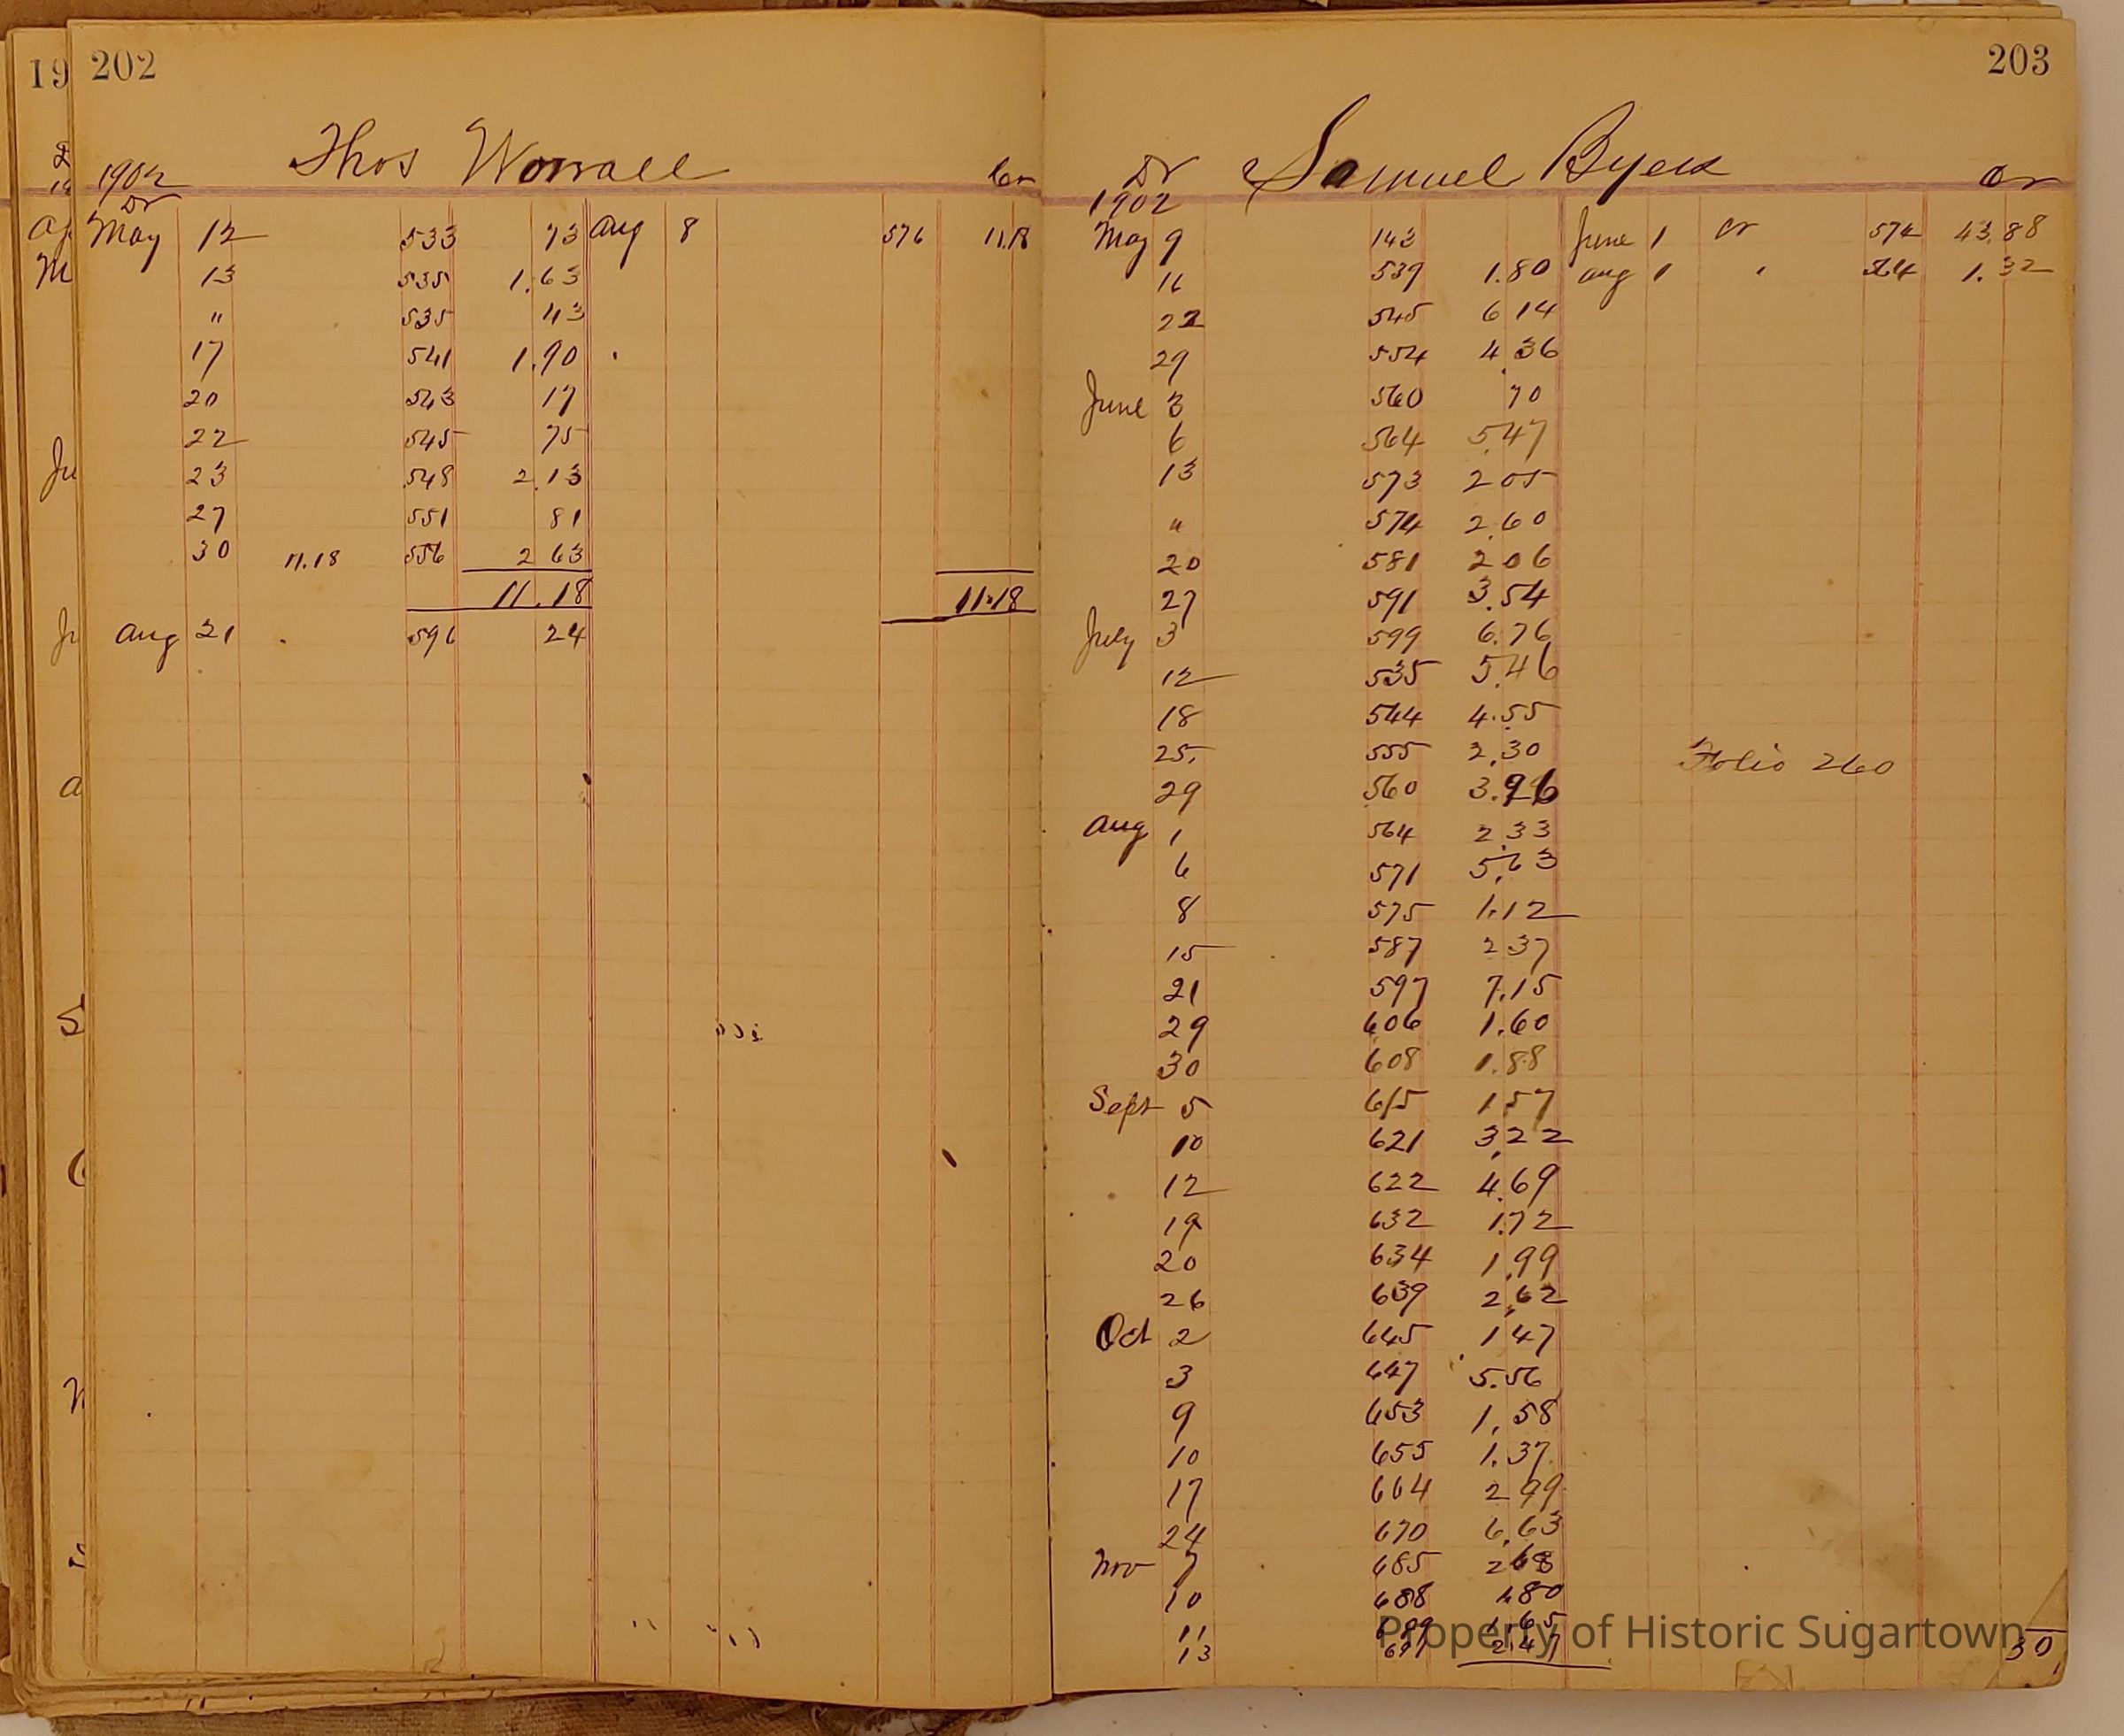 19 202
Thos Worrall
1902 Cr
Dr
May 12 533 73 Aug 8 576 11.18
13 535 1.63
" 535 43
17 541 1.90
20 543 17
22 545 75
23 548 2.13
27 551 81
30 11.18 556 2 63
11.18 11.18
Aug 21 596 24
203
Dr Samuel Byers Cr
1902
May 9 143 June 1 Cr 574 43.88
16 539 1.80 Aug 1 " 564 1.32
22 545 6 14
29 554 4 36
June 3 560 70
6 564 5.47
13 573 2 05
" 574 2.60
20 581 2 06
27 591 3.54
July 3 599 6.76
12 535 5.46
18 544 4.55
25 555 2.30 Folio 260
29 560 3.96
Aug 1 564 2.33
6 571 5.63
8 575 1.12
15 587 2 37
21 597 7.15
29 606 1.60
30 608 1.88
Sept 5 615 1 57
10 621 3.22
12 622 4.69
19 632 1.72
20 634 1.99
26 639 2.62
Oct 2 645 1 47
3 647 5.56
9 653 1.58
10 655 1.37
17 664 2 99
24 670 6.63
Nov 7 685 2 68
10 688 480
11 1.65
13 2.47 30
Property of Historic Sugartown